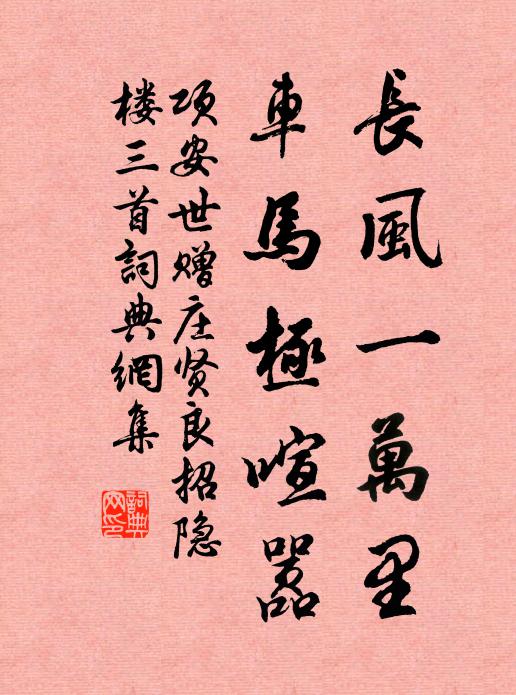 長風一萬里
車馬極喧嚣
项安世赠庄贤良招隐
楼三首詞典網集
詞典
网印